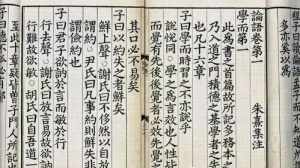 論語卷第一 朱熹集注
學而第一
此為書之首篇故所記多務本
乃入道之門積德之基學者之
也凡十六章
子曰學而時習之不亦說乎
說悅同學之為言效也人性
而覺有先後後覺者必效先覺
子曰以約失之者鮮矣
鮮上聲謝氏曰不侈然以自
之謂約尹氏曰凡事約則鮮失非
謂儉約也
子曰君子欲訥於言而敏於行
行去聲謝氏曰放言易故欲訥
行難故欲敏胡氏曰自吾道一
至此十章疑皆曾子門人所記